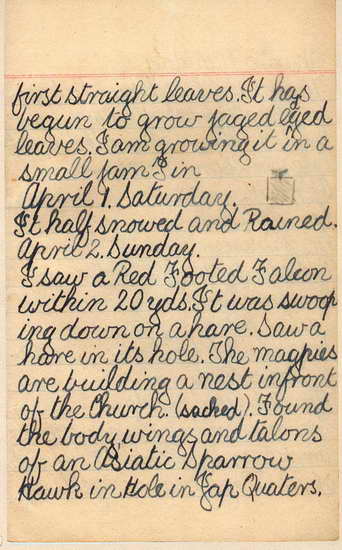 first straight leaves. It has
begun to grow jaged eged
leaves. I am growing it in a
small jam Tin
April 1. Saturday.
It half snowed and Rained.
April 2. Sunday.
I saw a Red Footed Falcon
within 20 yds. It was swoop
ing down on a hare. Saw a
hare in its hole. The magpies
are building a nest infront
of the Church. (sacked). Found
the body, wings and talons
of an Asiatic Sparrow
Hawk in Hole in Jap Quaters.